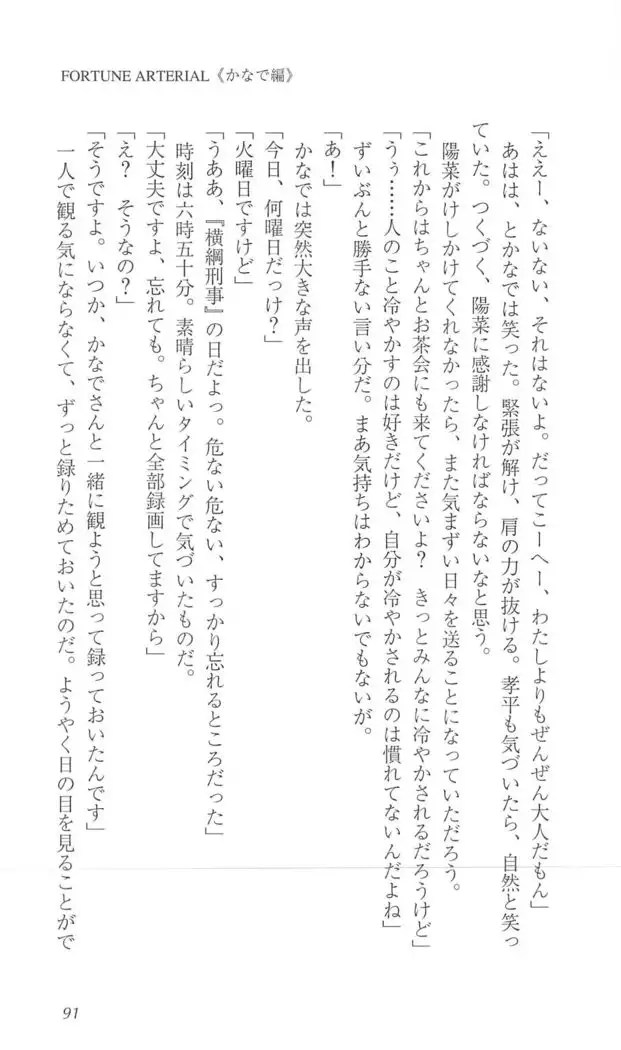 FORTUNE ARTERIAL《かなで編》
「ええー、ないない、それはないよ。だってこーへー、わたしよりもぜんぜん大人だもん」
あはは、とかなでは笑った。緊張が解け、肩の力が抜ける。孝平も気づいたら、自然と笑っ
ていた。つくづく、陽菜に感謝しなければならないなと思う。
陽菜がけしかけてくれなかったら、また気まずい日々を送ることになっていただろう。
「これからはちゃんとお茶会にも来てくださいよ？　きっとみんなに冷やかされるだろうけど」
「うぅ……人のこと冷やかすのは好きだけど、自分が冷やかされるのは慣れてないんだよね」
ずいぶんと勝手な言い分だ。まあ気持ちはわからないでもないが。
「あ！」
かなでは突然大きな声を出した。
「今日、何曜日だっけ？」
「火曜日ですけど」
「うああ、『横綱刑事』の日だよっ。危ない危ない、すっかり忘れるところだった」
時刻は六時五十分。素晴らしいタイミングで気づいたものだ。
「大丈夫ですよ、忘れても。ちゃんと全部録画してますから」
「え？　そうなの？」
「そうですよ。いつか、かなでさんと一緒に観ようと思って録っておいたんです」
一人で観る気にならなくて、ずっと録りためておいたのだ。ようやく日の目を見ることがで
91